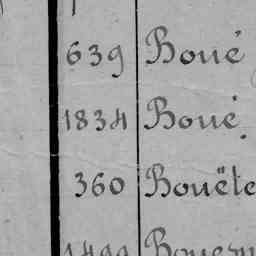 639 Boué
1834 Boué
360 Bouëte
1499